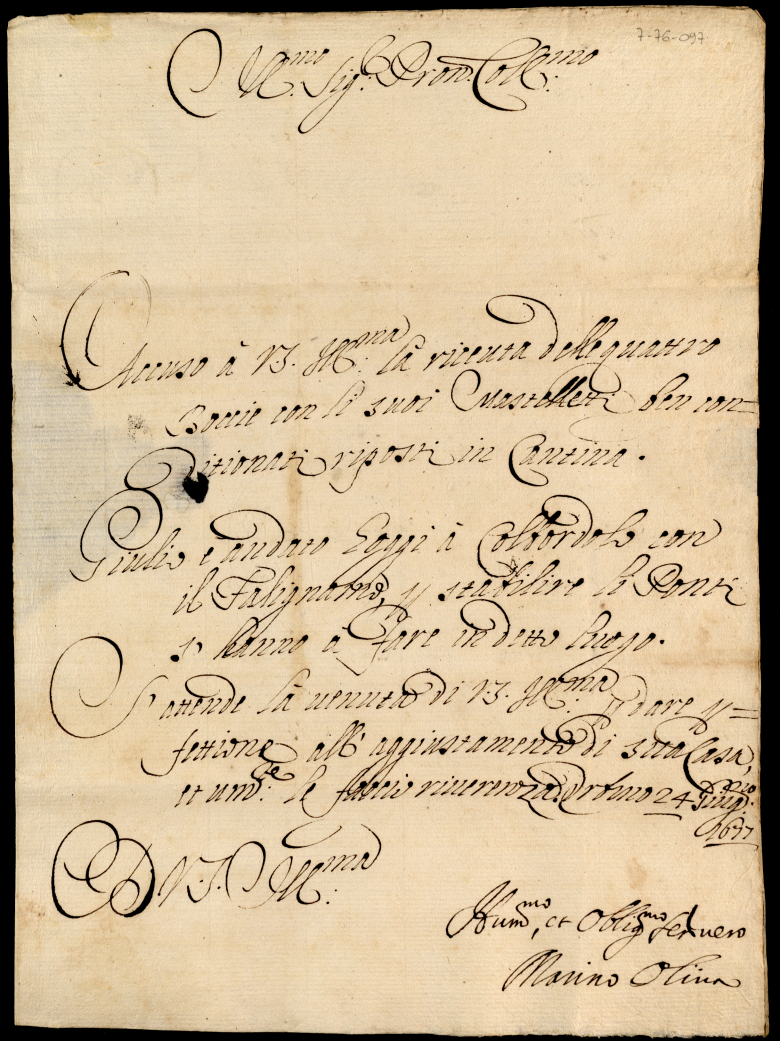 7-76-097
Ill.mo Sig.r Pron. Coll.mo
Accuso à V.S. Ill.ma la riceuta delle quattro
Boccie con li suoi Mastelletti ben con=
ditionati riposti in Cantina.
Giulio è andato hoggi à Colbordolo con
il Falegname, p stabilire le Ponti
si hanno à fare in detto luogo.
S'attende la uenuta di V.S. Ill.ma p dare p=
fettione all'aggiustamento di sua Casa,
et um.te le faccio riuerenza. Urbino 24 Giug.no
1677
D V.S. Ill.ma
Hum.mo, et Oblig.mo Ser uero
Marino Oliua